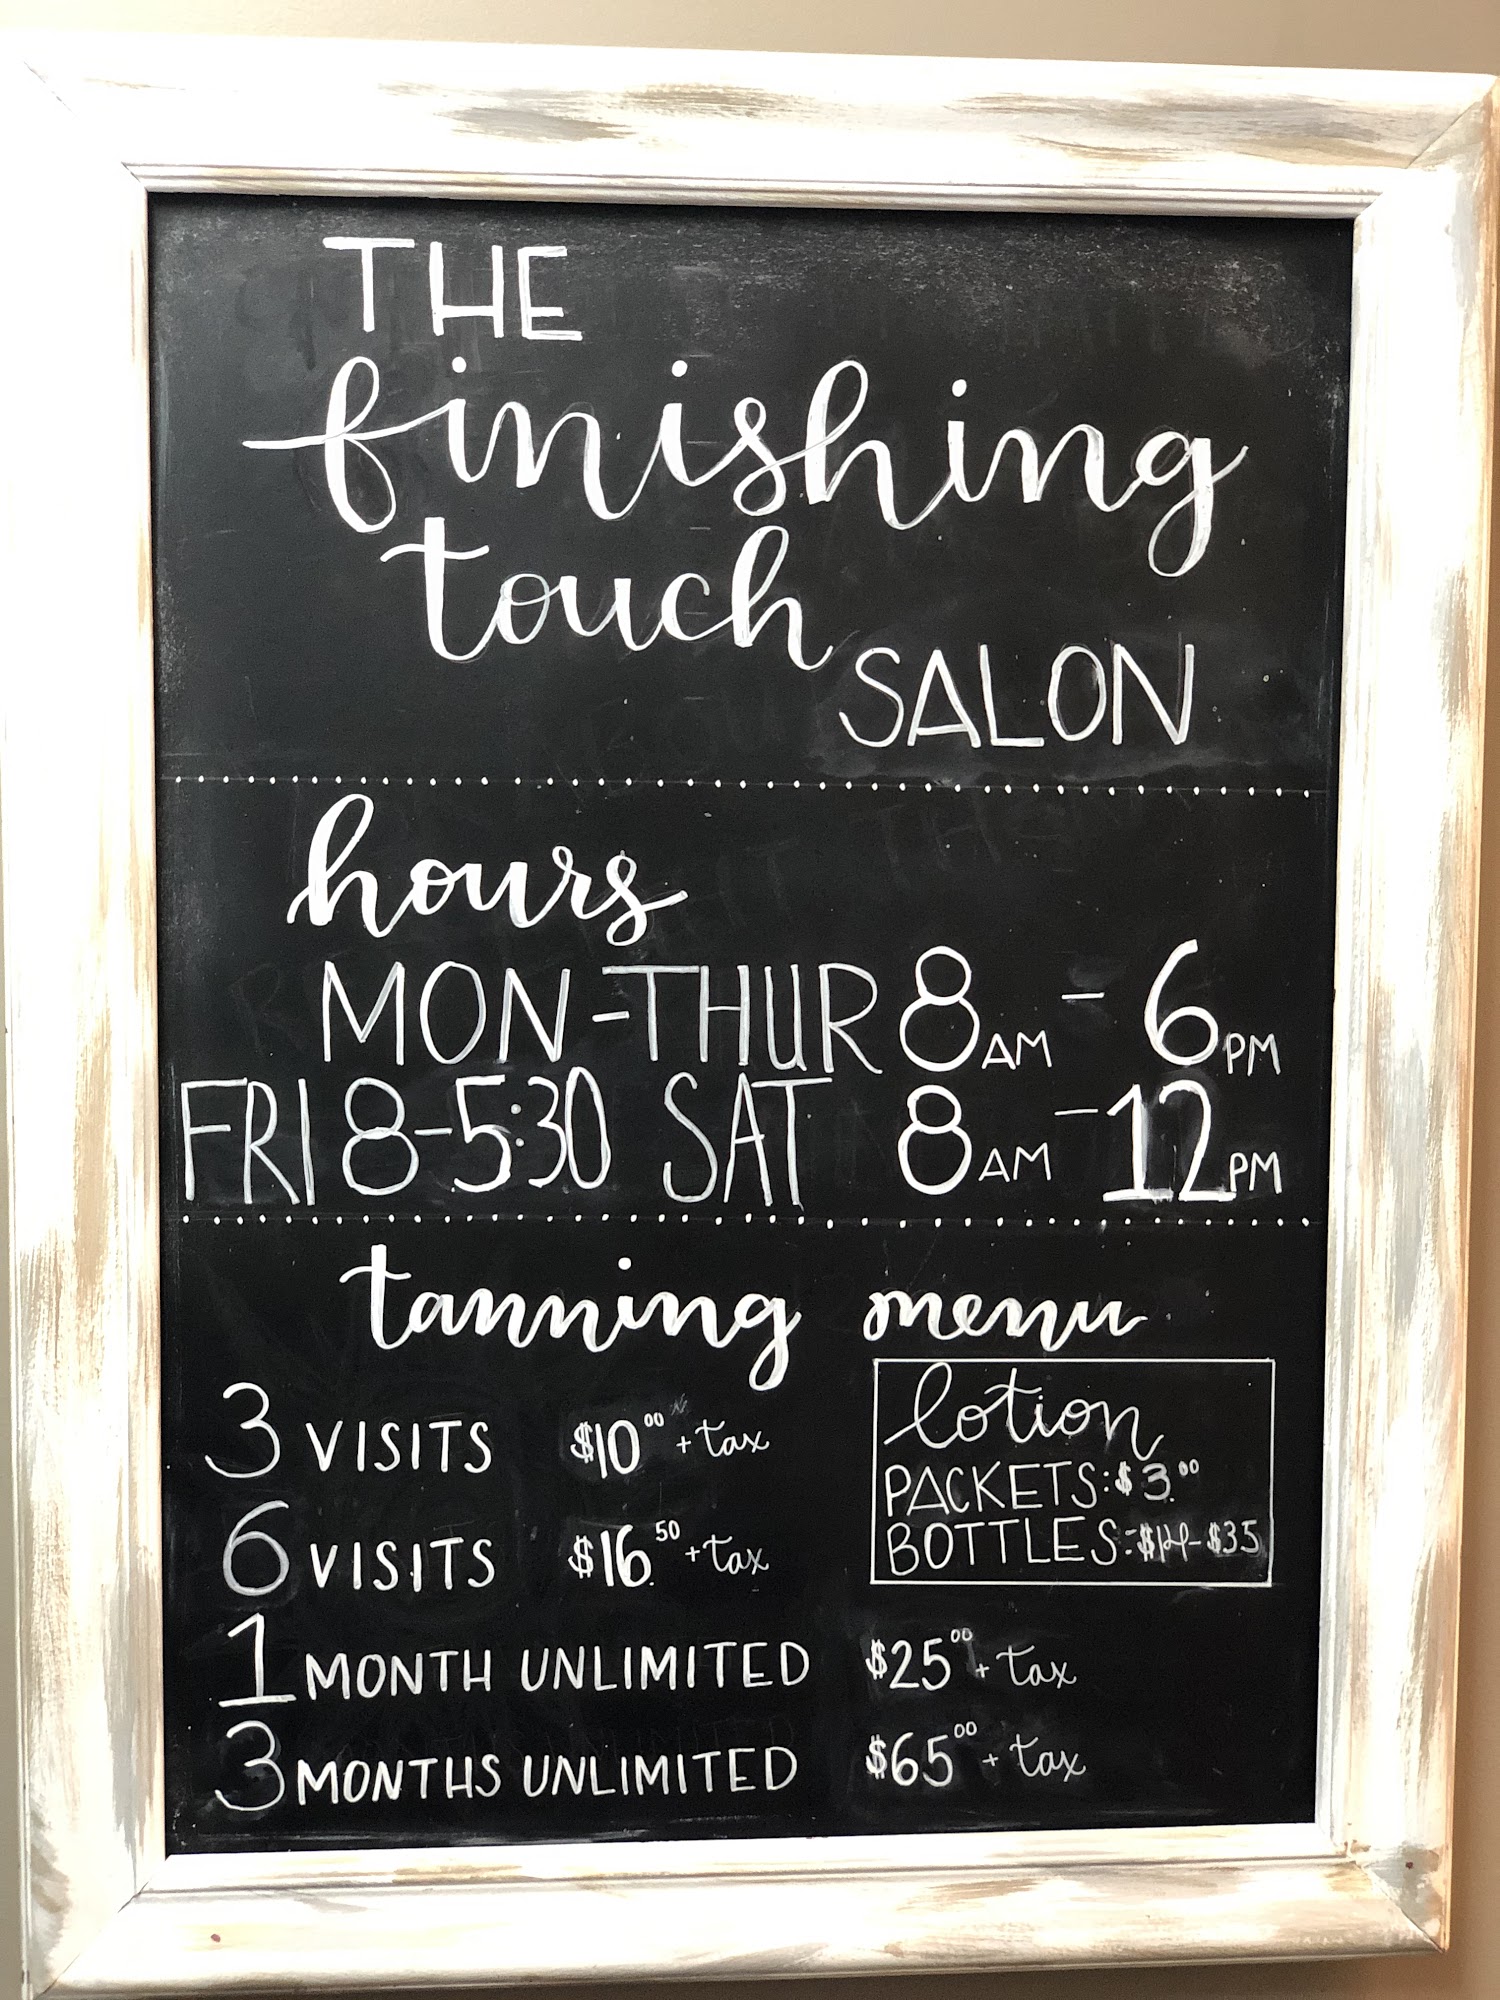 THE
finishing
touch
SALON
hours
MON-THUR 8AM - 6PM
FRI 8-5:30 SAT 8AM - 12PM
tanning menu
3 VISITS $10.00 + tax
6 VISITS $16.50 + tax
1 MONTH UNLIMITED $25.00 + tax
3 MONTHS UNLIMITED $65.00 + tax
lotion
PACKETS: $3.00
BOTTLES: - $35